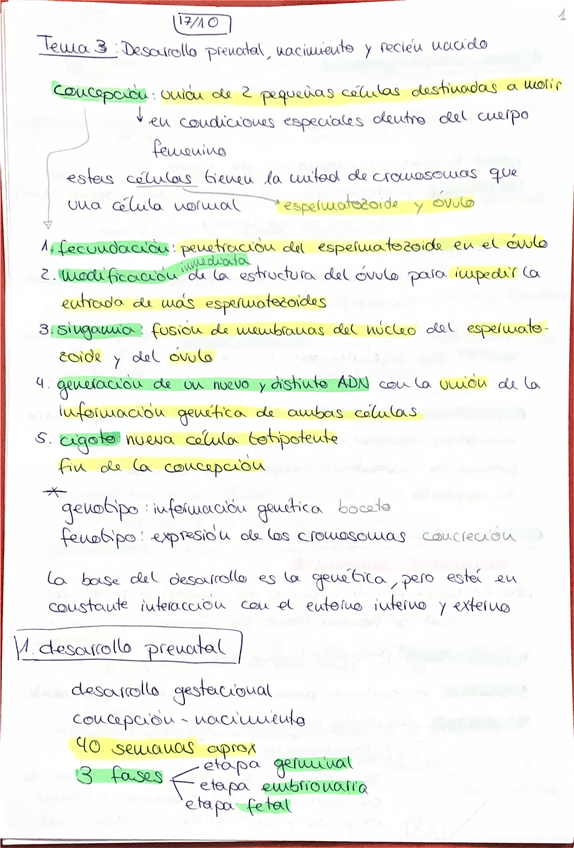 17/10
1
Tema 3: Desarrollo prenatal, nacimiento y recién nacido
concepción: unión de 2 pequeñas células destinadas a morir
en condiciones especiales dentro del cuerpo
femenino
estas células tienen la mitad de cromosomas que
una célula normal espermatozoide y óvulo
1. fecundación: penetración del espermatozoide en el óvulo
inmediata
2. modificación de la estructura del óvulo para impedir la
entrada de más espermatozoides
3. singamia: fusión de membranas del núcleo del espermato-
zoide y del óvulo
4. generación de un nuevo y distinto ADN con la unión de la
información genética de ambas células
5. cigoto nueva célula totipotente
fin de la concepción
*
genotipo: información genética boceto
fenotipo: expresión de los cromosomas concreción
la base del desarrollo es la genética, pero está en
constante interacción con el entorno interno y externo
1. desarrollo prenatal
desarrollo gestacional
concepción - nacimiento
40 semanas aprox
3 fases etapa germinal
etapa embrionaria
etapa fetal